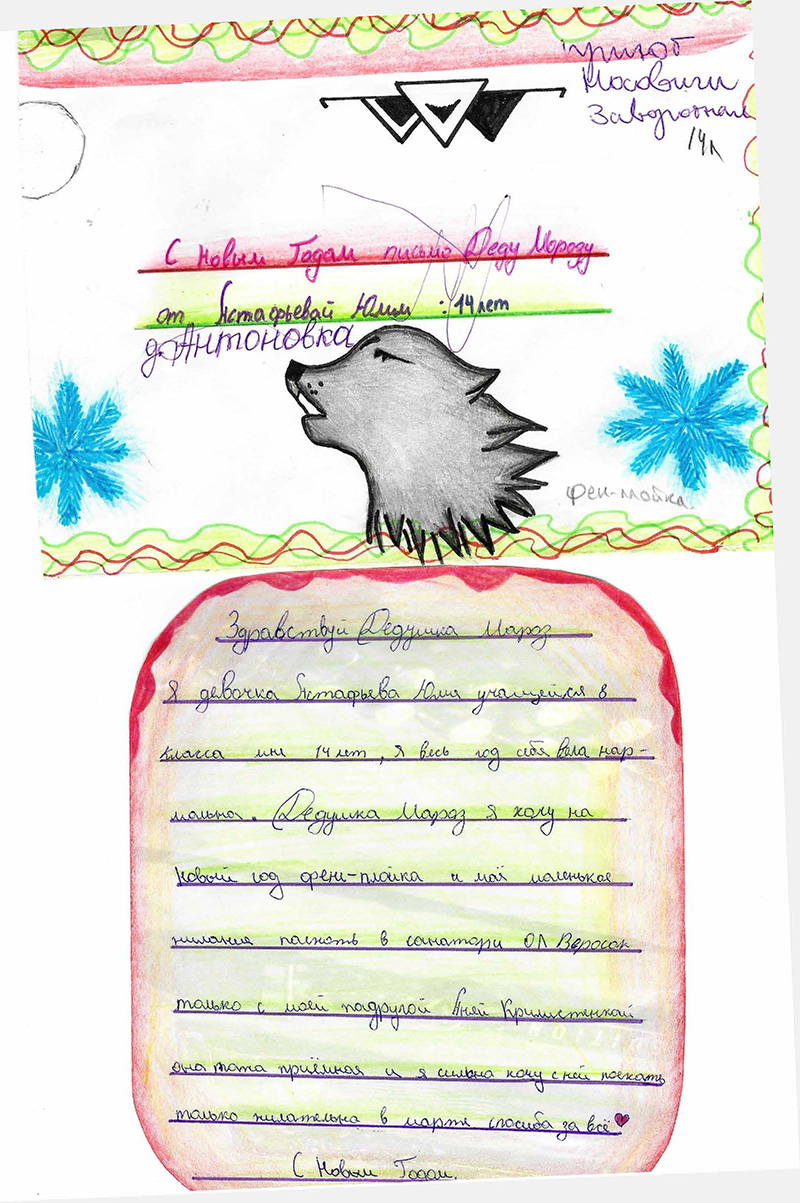 приют
Мосовичи
Заворотная
14л
С Новым Годам письмо Деду Морозу
от Астафьевай Юли : 14 лет
д. Антоновка
фен-плойка.
Здравствуй Дедушка Мароз
Я девочка Астафьева Юля учащейся 8
класса мне 14 лет, я весь год себя вела нар-
мальна. Дедушка Мароз я хочу на
Новый год фен-плойка и маё маленькое
жилания паехать в санатори ОЛ
только с маей падругой Аней
она тота приёмная и я сильна хочу с ней поехать
только жилательна в марте спасиба за всё
С Новым Годам.